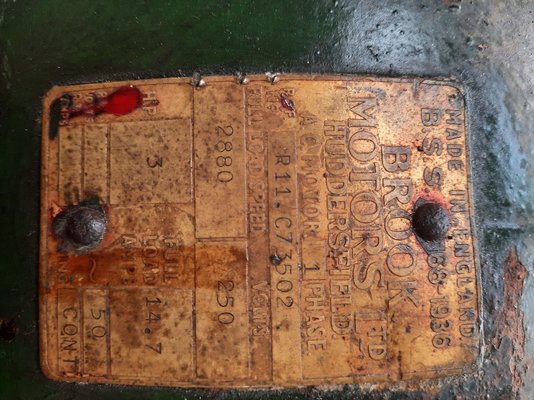 MADE IN ENGLAND
B.S.S. 168-1936
BROOK
MOTORS LTD
HUDDERSFIELD
A C MOTOR 1 PHASE
REF
R11. C73502
FULL LOAD SPEED VOLTS
2880 250
HP FULL
LOAD
AMPS
3 14.7
50
CONT